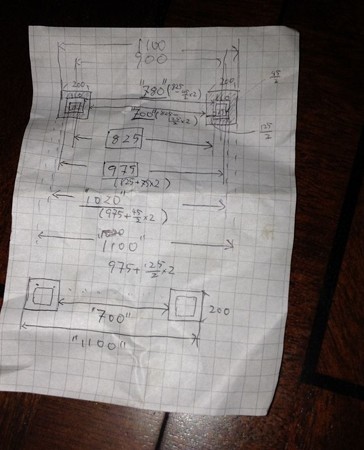 1100
900
200 "780" (825-45/2×2) 200
"700"
45/2
125/2
825
975
(125+25×2)
"1020"
(975+45/2×2)
"1100"
975+125/2×2
"700" 200
"1100"